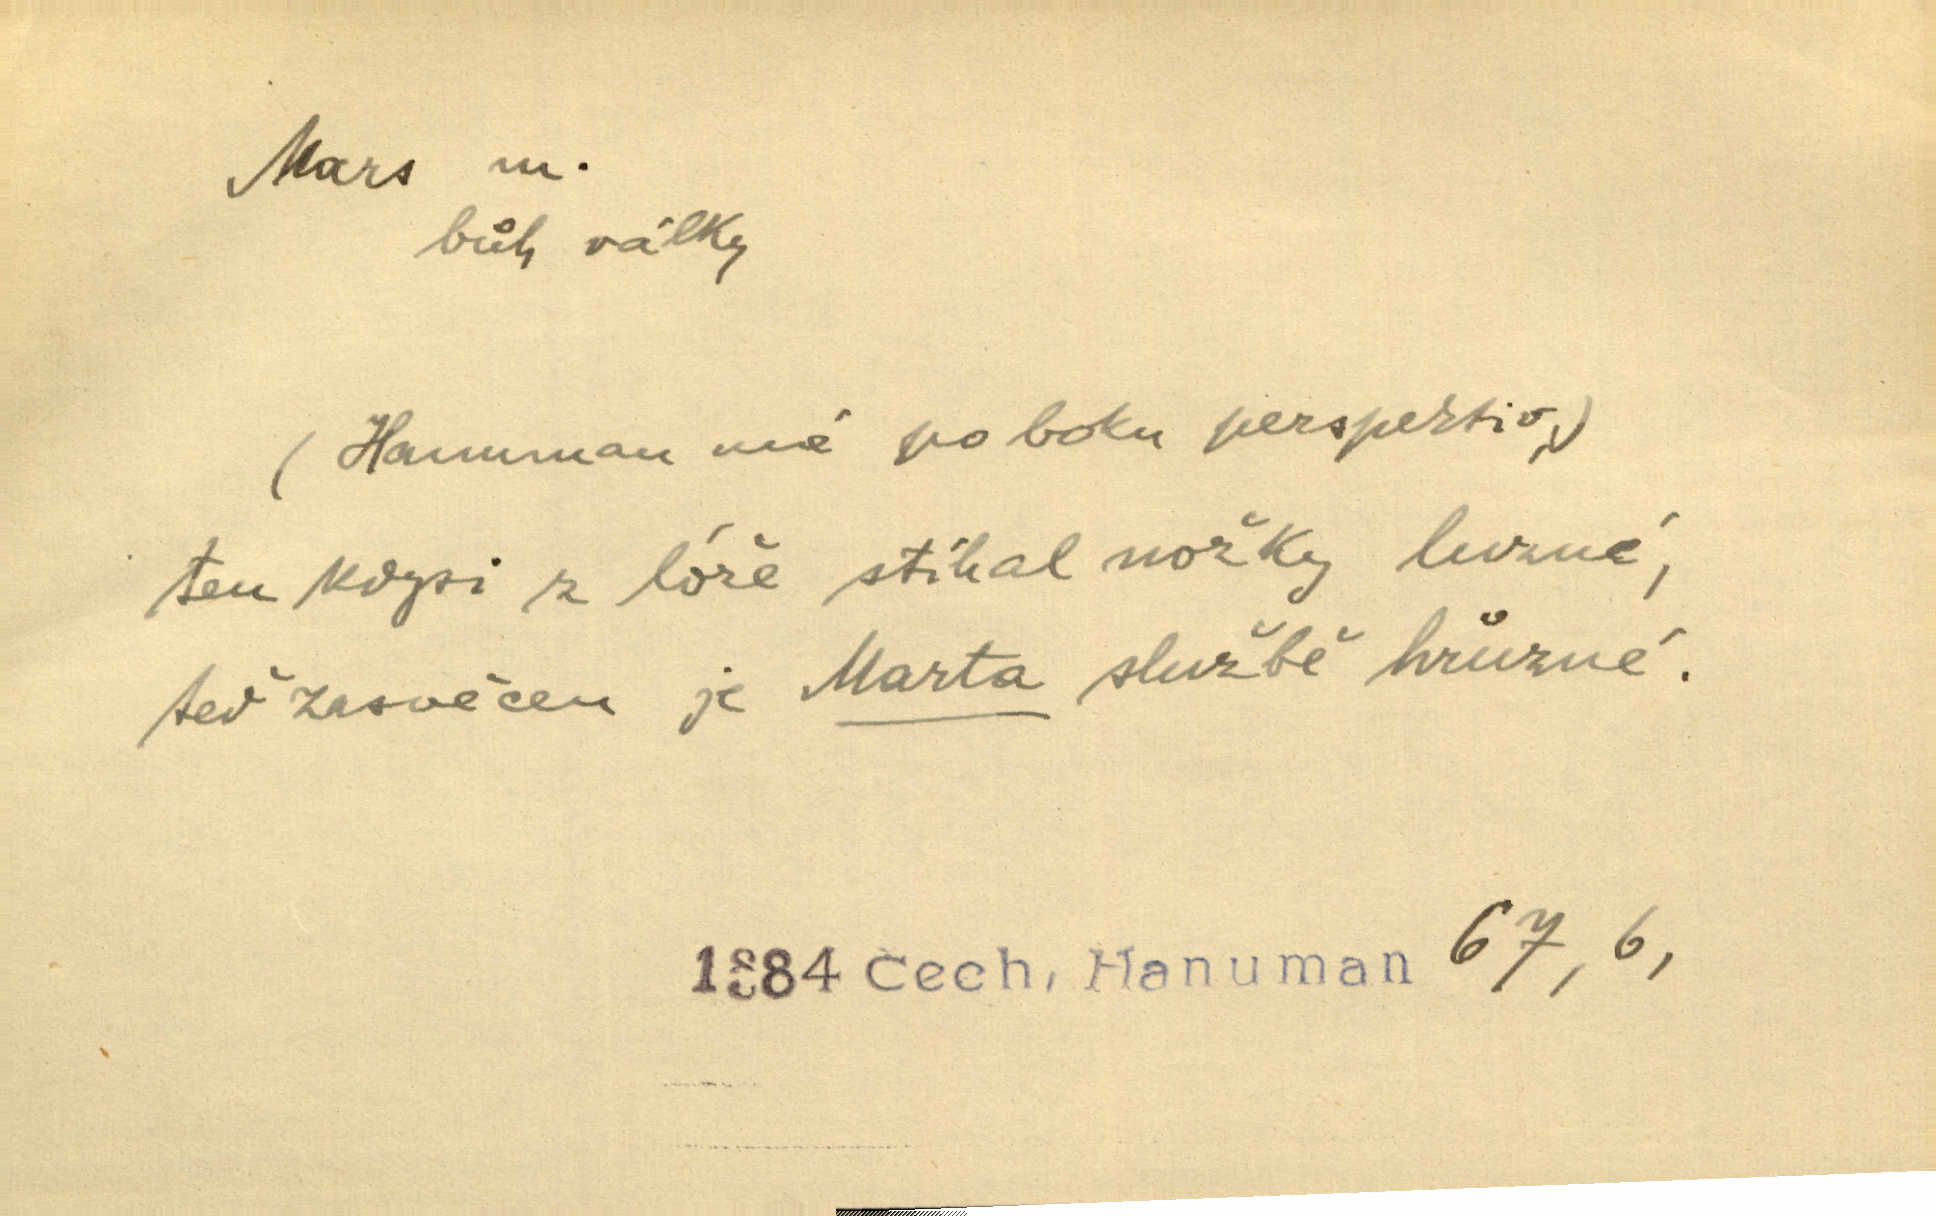 Mars m.
bůh války
(Hanuman má po boku perspektiv,)
ten kdysi z lóže stíhal nožky luzné,
teď zasvěcen je Marta službě hrůzné.
1884 Čech, Hanuman 67, 6,